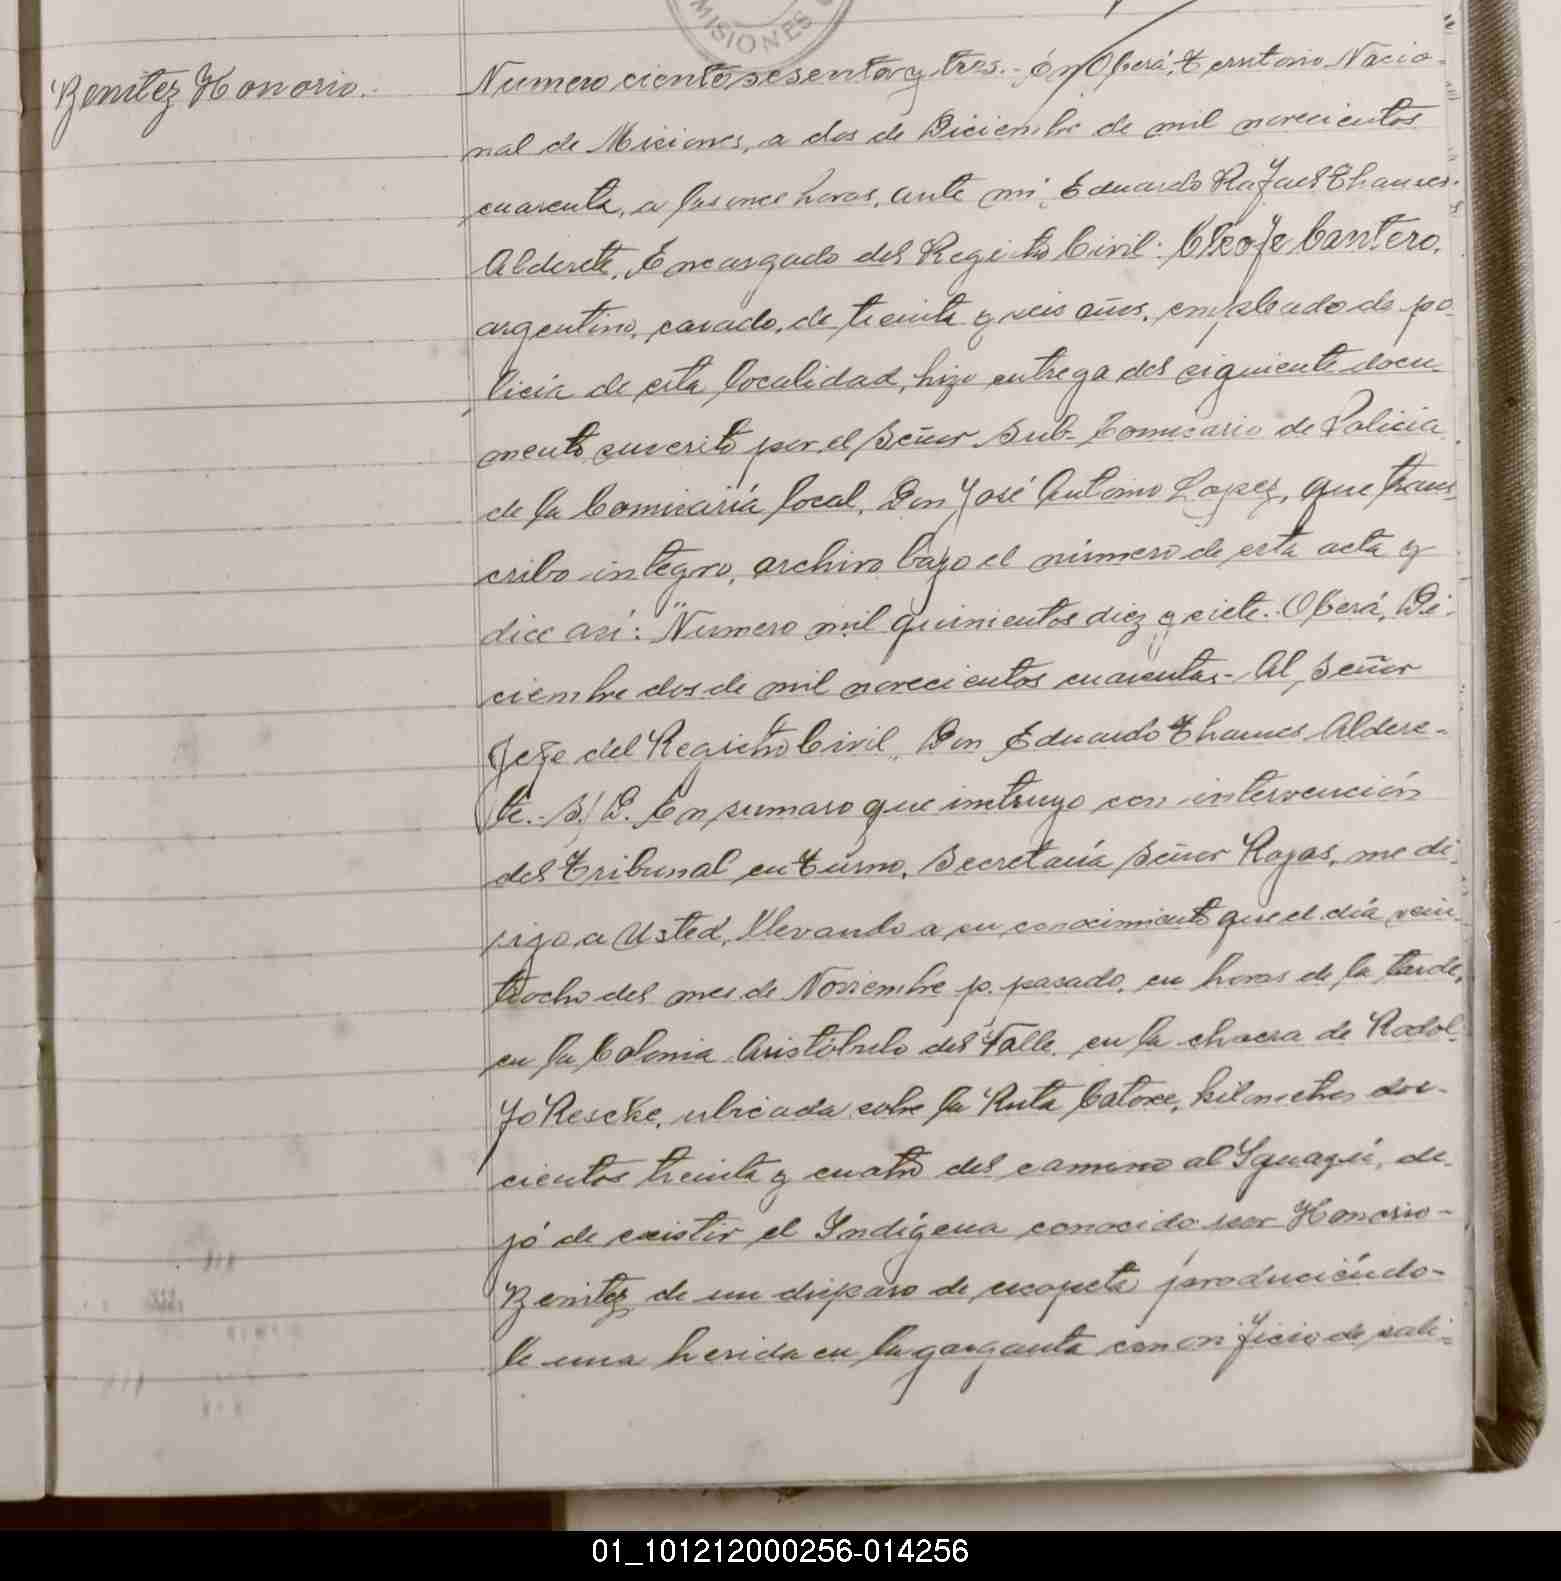 MISIONES
Benitez Honorio.-
Numero ciento sesenta y tres.- En Oberá, Territorio Nacio-
nal de Misiones, a dos de Diciembre de mil novecientos
cuarenta, a las once horas, ante mi, Eduardo Rafael Thames
Alderete, Encargado del Registro Civil: Cleofe Cantero,
argentino, casado, de treinta y seis años, empleado de po-
licia de esta localidad, hizo entrega del siguiente docu-
mento suscrito por el Señor Sub-Comisario de Policia
de la Comisaría local, Don José Antonio Lopez, que trans-
cribo integro, archivo bajo el número de esta acta y
dice asi: "Numero mil quinientos diez y siete.- Oberá, Di-
ciembre dos de mil novecientos cuarenta.- Al Señor
Jefe del Registro Civil, Don Eduardo Thames Aldere-
te.- S/D. En sumaro que instruyo con intervención
del Tribunal en Turno, Secretaría Señor Rojas, me di-
rijo a Usted, llevando a su conocimiento que el día vein-
tiocho del mes de Noviembre p. pasado, en horas de la tarde,
en la Colonia Aristóbulo del Valle, en la chacra de Rodol-
fo Rescke, ubicada sobre la Ruta Catorce, kilometros dos-
cientos treinta y cuatro del camino al Iguazú, de-
jó de existir el Indígena conocido por Honorio-
Benitez de un disparo de escopeta produciéndo-
le una herida en la garganta con orificio de sali-
01_101212000256-014256